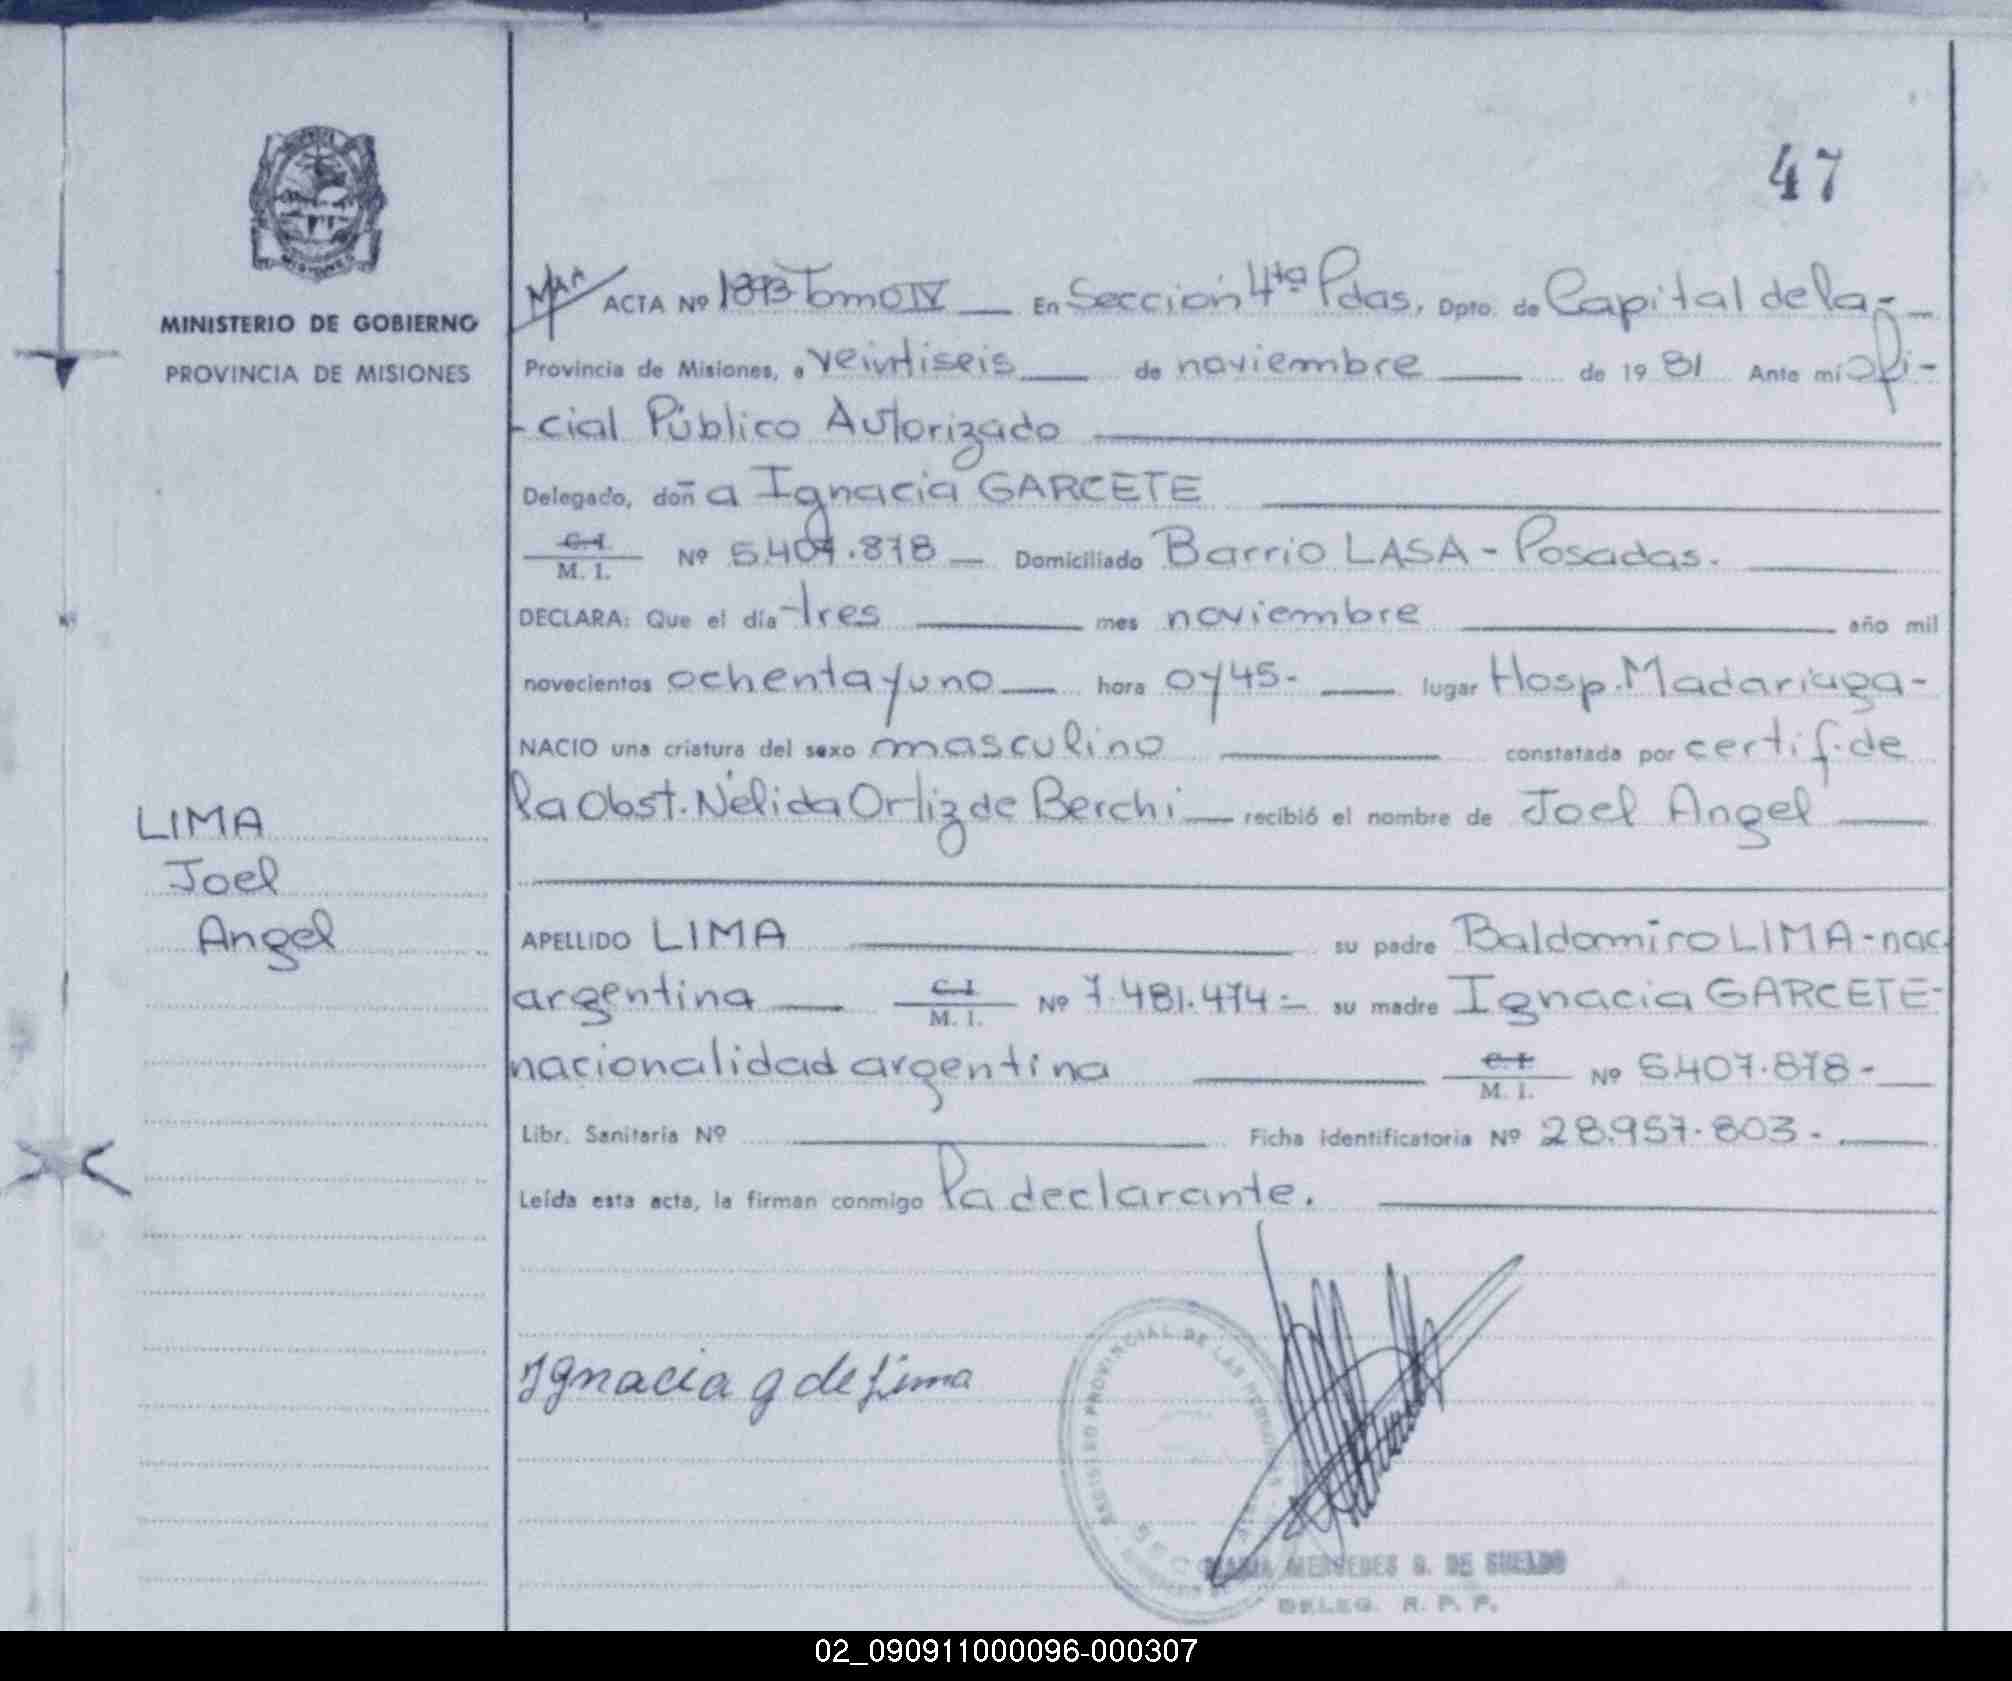 47
MINISTERIO DE GOBIERNO
PROVINCIA DE MISIONES
ACTA Nº 1893 Tomo IV En Sección 4ta Pdas. Dpto. de Capital de la-
Provincia de Misiones, a veintiseis de noviembre de 1981 Ante mí Ofi-
-cial Público Autorizado
Delegado, doña Ignacia GARCETE
C. I. / M. I. Nº 5.407.878 Domiciliado Barrio LASA - Posadas.
DECLARA: Que el día tres mes noviembre año mil
novecientos ochenta y uno hora 0 y 45- lugar Hosp. Madariaga-
NACIO una criatura del sexo masculino constatada por certif. de
la Obst. Nélida Ortiz de Berchi recibió el nombre de Joel Angel
LIMA
Joel
Angel
APELLIDO LIMA su padre Baldomiro LIMA - nac.
argentina C. I. / M. I. Nº 7.481.474 - su madre Ignacia GARCETE-
nacionalidad argentina C. I. / M. I. Nº 5.407.878-
Libr. Sanitaria Nº Ficha identificatoria Nº 28.957.803-
Leída esta acta, la firman conmigo la declarante.
Ignacia g de Lima
REGISTRO PROVINCIAL DE LAS PERSONAS
MARIA MERCEDES G. DE SUELDO
DELEG. R. P. P.
02_090911000096-000307